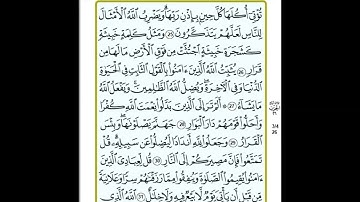 تُؤْتِىٓ أُكُلَهَا كُلَّ حِينٍۭ بِإِذْنِ رَبِّهَا ۗ وَيَضْرِبُ ٱللَّهُ ٱلْأَمْثَالَ
لِلنَّاسِ لَعَلَّهُمْ يَتَذَكَّرُونَ ٢٥ وَمَثَلُ كَلِمَةٍ خَبِيثَةٍ
كَشَجَرَةٍ خَبِيثَةٍ ٱجْتُثَّتْ مِن فَوْقِ ٱلْأَرْضِ مَا لَهَا مِن
قَرَارٍ ٢٦ يُثَبِّتُ ٱللَّهُ ٱلَّذِينَ ءَامَنُوا۟ بِٱلْقَوْلِ ٱلثَّابِتِ فِى ٱلْحَيَوٰةِ
ٱلدُّنْيَا وَفِى ٱلْءَاخِرَةِ ۖ وَيُضِلُّ ٱللَّهُ ٱلظَّٰلِمِينَ ۚ وَيَفْعَلُ ٱللَّهُ
مَا يَشَآءُ ٢٧ أَلَمْ تَرَ إِلَى ٱلَّذِينَ بَدَّلُوا۟ نِعْمَتَ ٱللَّهِ كُفْرًا
وَأَحَلُّوا۟ قَوْمَهُمْ دَارَ ٱلْبَوَارِ ٢٨ جَهَنَّمَ يَصْلَوْنَهَا ۖ وَبِئْسَ
ٱلْقَرَارُ ٢٩ وَجَعَلُوا۟ لِلَّهِ أَندَادًا لِّيُضِلُّوا۟ عَن سَبِيلِهِۦ ۗ قُلْ
تَمَتَّعُوا۟ فَإِنَّ مَصِيرَكُمْ إِلَى ٱلنَّارِ ٣٠ قُل لِّعِبَادِىَ ٱلَّذِينَ
ءَامَنُوا۟ يُقِيمُوا۟ ٱلصَّلَوٰةَ وَيُنفِقُوا۟ مِمَّا رَزَقْنَٰهُمْ سِرًّا وَعَلَانِيَةً
مِّن قَبْلِ أَن يَأْتِىَ يَوْمٌ لَّا بَيْعٌ فِيهِ وَلَا خِلَٰلٌ ٣١ ٱللَّهُ ٱلَّذِى
3/4
26